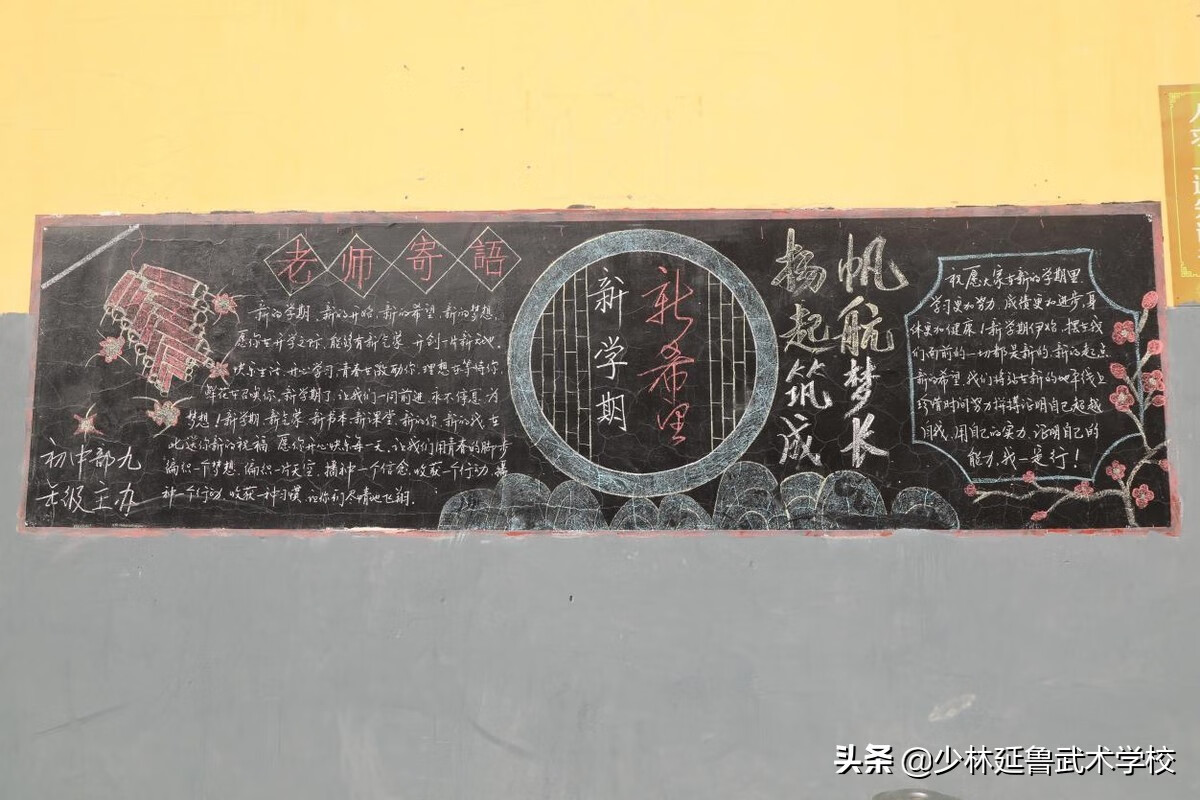 老师寄語
新的学期、新的开始、新的希望、新的梦想.
愿你在开学之际,能够有新气象,开创一片新天地.
快乐生活,开心学习,青春在鼓动你,理想在等待你,
鲜花在召唤你,新学期了,让我们一同前进,永不停息,为
梦想!新学期,新气象,新书本,新课堂,新的你,新的我,在
此送你新的祝福,愿你开心快乐每一天,让我们用青春的脚步
编织一个梦想,编织一片天空,播种一个信念,收获一个行动,播
种一个行动,收获一种习惯,让你们尽情地飞翔.
初中部九
年级主办
新学期
新希里
扬起筑成
帆航梦长
祝愿大家在新的学期里
学习更加努力,成绩更加进步,身
体更加健康!新学期伊始,摆在我
们面前的一切都是新的,新的起点
新的希望,我们将站在新的地平线上
珍惜时间努力拼搏证明自己超越
自我,用自己的实力,证明自己的
能力,我一定行!
头条 @少林延鲁武术学校